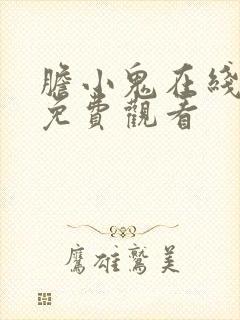 膽小鬼在綫
免費觀看
鷹雄鷲美